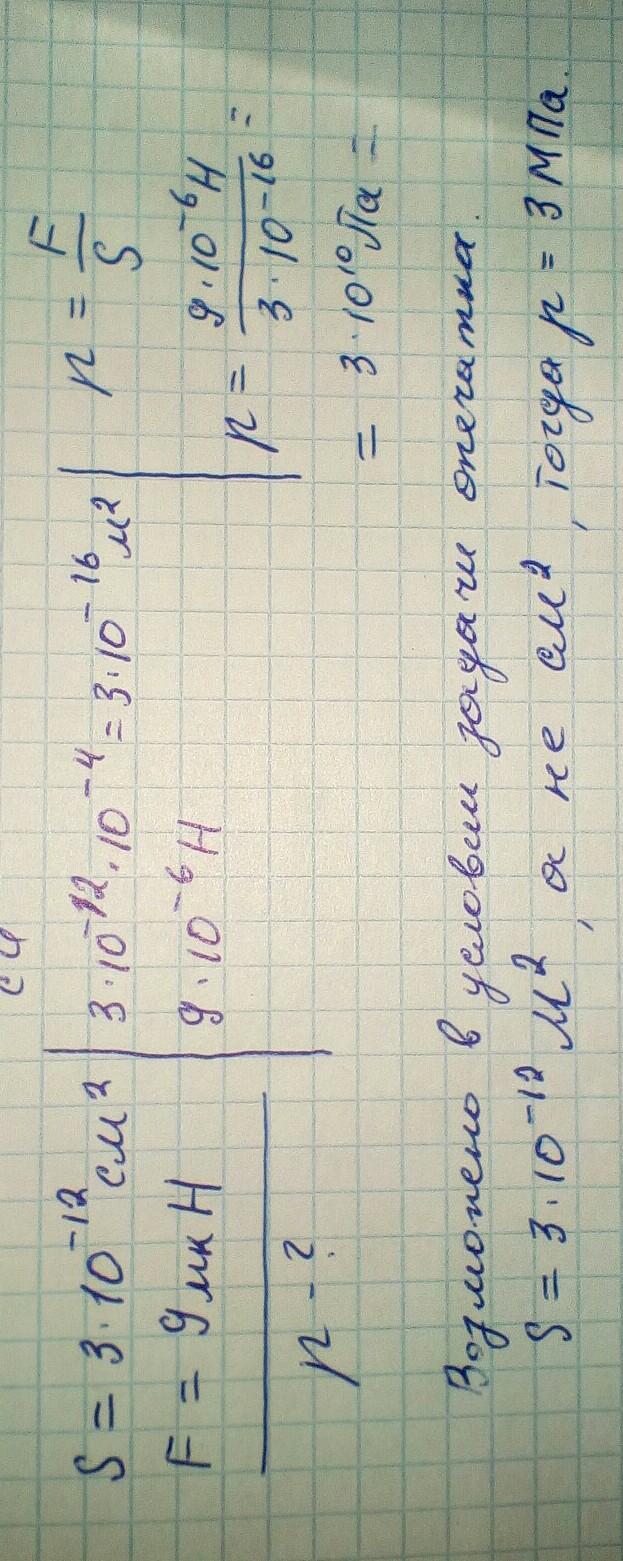 СИ
S = 3·10⁻¹² см² | 3·10⁻¹²·10⁻⁴ = 3·10⁻¹⁶ м² | p = F/S
F = 9 мкН | 9·10⁻⁶ Н | p = 9·10⁻⁶ Н / 3·10⁻¹⁶ =
p - ? | = 3·10¹⁰ Па =
Возможено в условии задачи опечатка.
S = 3·10⁻¹² м², а не см², тогда p = 3 МПа.